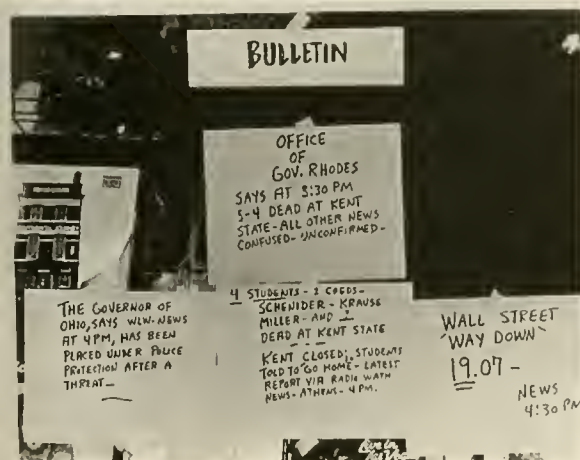 BULLETIN
OFFICE
OF
GOV. RHODES
SAYS AT 3:30 PM
5-4 DEAD AT KENT
STATE-ALL OTHER NEWS
CONFUSED- UNCONFIRMED-
THE GOVERNOR OF
OHIO, SAYS WLW-NEWS
AT 4PM, HAS BEEN
PLACED UNDER POLICE
PROTECTION AFTER A
THREAT-
4 STUDENTS - 2 COEDS-
SCHENIDER - KRAUSE
MILLER - AND ?
DEAD AT KENT STATE
KENT CLOSED; STUDENTS
TOLD TO GO HOME - LATEST
REPORT VIA RADIO WATH
NEWS - ATHENS - 4 PM.
WALL STREET
'WAY DOWN'
19.07 -
NEWS
4:30 PM